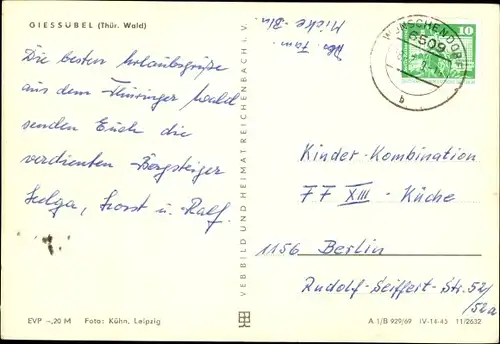 GIESSÜBEL (Thür. Wald)
Die besten Urlaubsgrüße
aus dem Thüringer Wald
senden Euch die
verdienten Bergsteiger
Helga, Horst u. Ralf.
EVP -,20 M Foto: Kühn, Leipzig
VEB BILD UND HEIMAT REICHENBACH i. V.
Fam.
WÜNSCHENDORF
6509
b
10
Kinder-Kombination
FF XIII - Küche
1156 Berlin
Rudolf-Seiffert-Str. 52/
52a
A 1/B 929/69 IV-14-45 11/2632